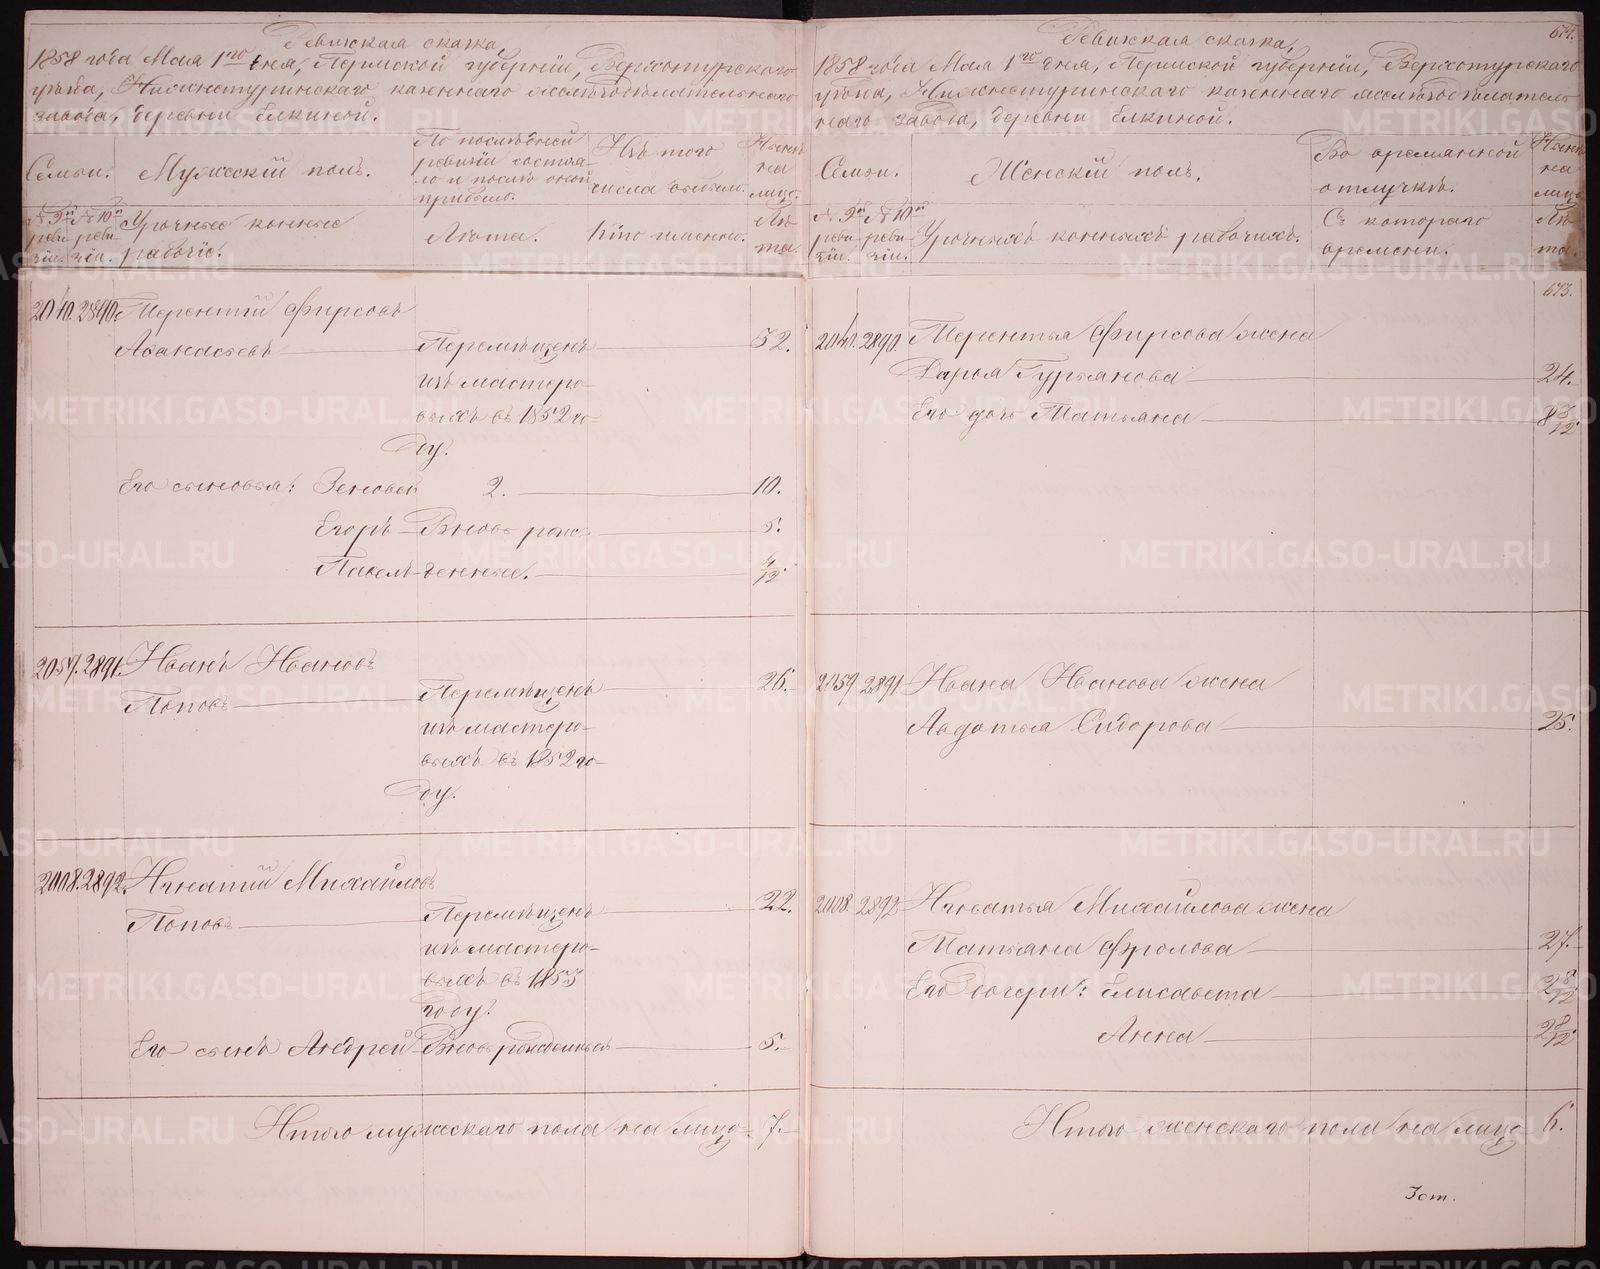 Ревижская сказка,
1858 года Мая 1го дня, Пермской губернiи, Верхотурскаго
уѣзда, Нижнетуринскаго казеннаго желѣзодѣлательнаго
завода, деревни Елкиной.
Семьи.
Мужескiй полъ.
По послѣдней
ревизiи состоя-
ло и послѣ оной
прибыло.
Изъ того
числа выбыло.
Нынѣ
на
лицо.
№ 9й
реви-
зiи.
№ 10й
реви-
зiи.
Урочные конные
рабочiе.
Лѣта.
Кто именно.
Лѣ
та.
2040. 2890. Терентiй Фирсовъ
Афанасьевъ Перемѣщенъ 32.
изъ мастеро-
выхъ въ 1852 го-
ду.
Его сыновья: Зеновей 2. 10.
Егоръ Вновь рож- 5.
Павелъ денные. 4/12.
2057. 2891. Иванъ Ивановъ
Поповъ Перемѣщенъ 26.
изъ мастеро-
выхъ въ 1852 го-
ду.
2008. 2892. Игнатiй Михайловъ
Поповъ Перемѣщенъ 22.
изъ мастеро-
выхъ въ 1853
году.
Его сынъ Андрей Вновь рожденный 5.
Итого мужескаго пола на лицо 7.
Ревижская сказка,
1858 года Мая 1го дня, Пермской губернiи, Верхотурскаго
уѣзда, Нижнетуринскаго казеннаго желѣзодѣлатель-
наго завода, деревни Елкиной.
Семьи.
Женскiй полъ.
Во временной
отлучкѣ.
Нынѣ
на
лицо
№ 9й
реви-
зiи.
№ 10й
реви-
зiи.
Урочныхъ конныхъ рабочихъ.
Съ котораго
времени.
Лѣ
та.
673.
2040. 2890. Терентья Фирсова жена
Дарья Гурьянова 24.
Его дочь Татьяна 8 3/12
2057 2891 Ивана Иванова жена
Авдотья Сидорова 25.
2008. 2892 Игнатья Михайлова жена
Татьяна Фролова 27.
Его дочери: Елисавета
Анна 2 8/12
Итого женскаго пола на лицо 6.
METRIKI.GASO-URAL.RU